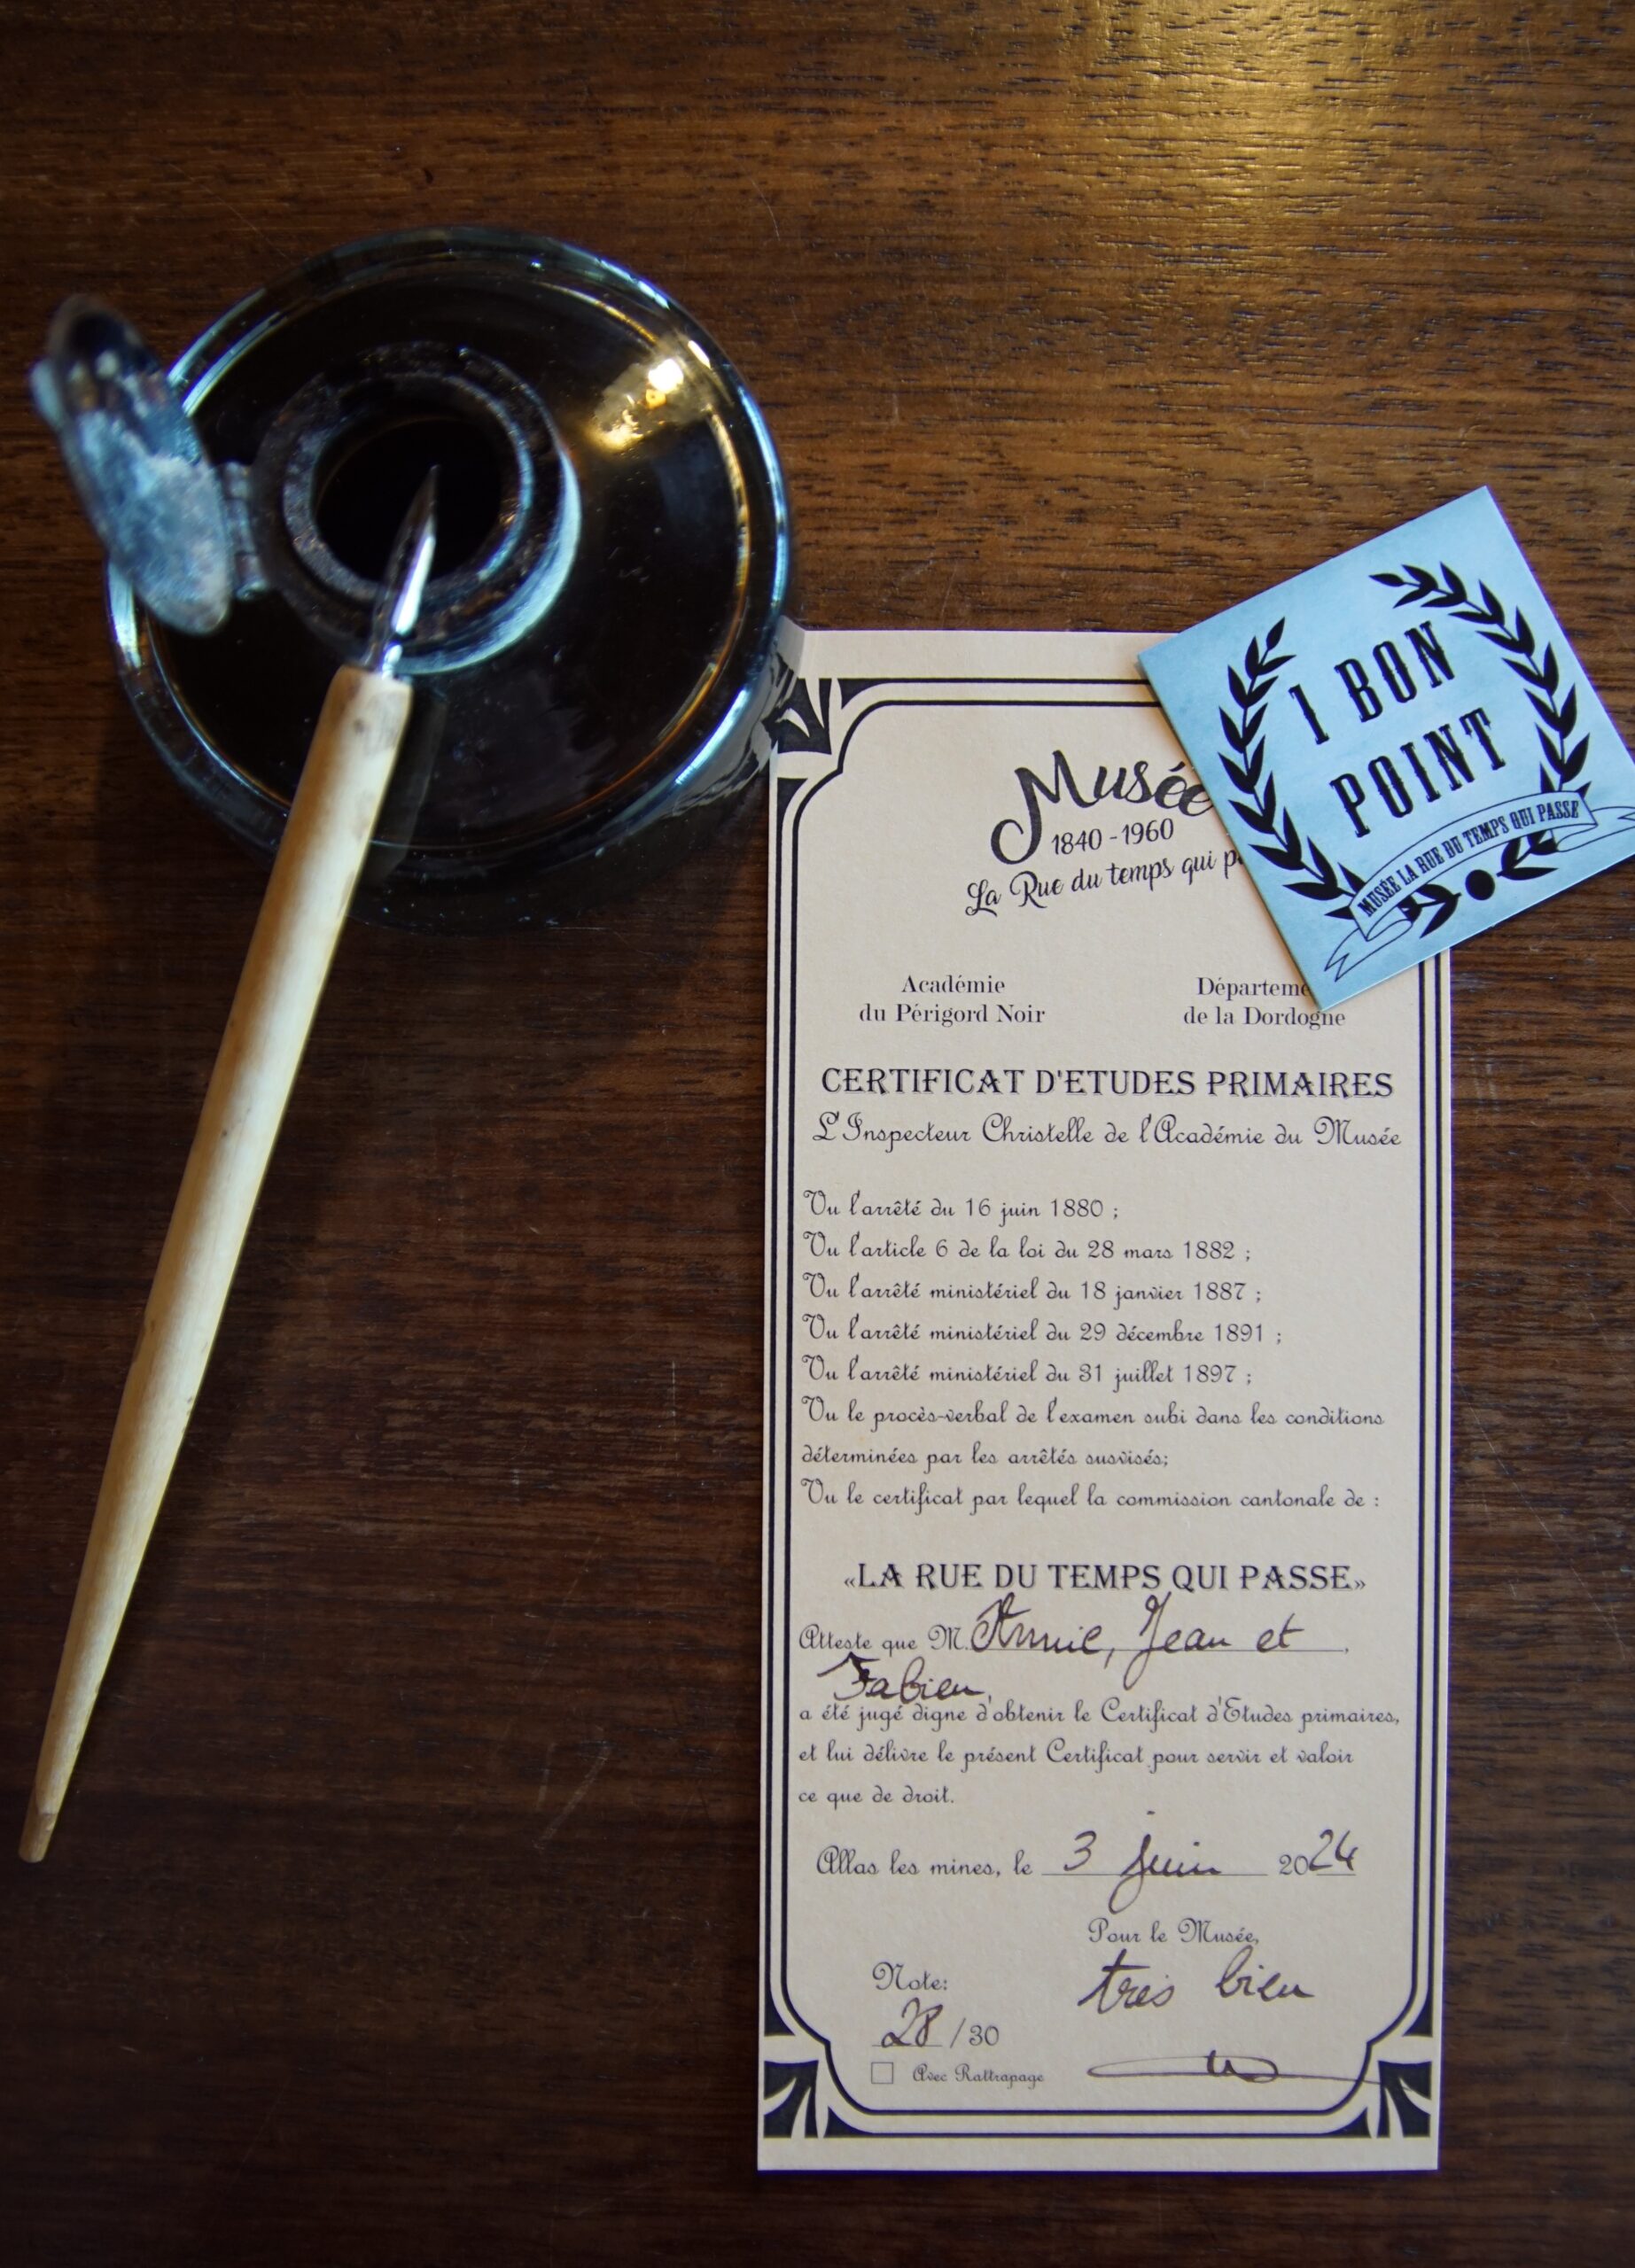 1 BON
POINT
MUSÉE LA RUE DU TEMPS QUI PASSE
Musée
1840 - 1960
La Rue du temps qui p
Académie
du Périgord Noir
Départeme
de la Dordogne
CERTIFICAT D'ETUDES PRIMAIRES
L'Inspecteur Christelle de l'Académie du Musée
Vu l'arrêté du 16 juin 1880 ;
Vu l'article 6 de la loi du 28 mars 1882 ;
Vu l'arrêté ministériel du 18 janvier 1887 ;
Vu l'arrêté ministériel du 29 décembre 1891 ;
Vu l'arrêté ministériel du 31 juillet 1897 ;
Vu le procès-verbal de l'examen subi dans les conditions
déterminées par les arrêtés susvisés;
Vu le certificat par lequel la commission cantonale de :
«LA RUE DU TEMPS QUI PASSE»
Atteste que M. Annie, Jean et
Fabien,
a été jugé digne d'obtenir le Certificat d'Etudes primaires,
et lui délivre le présent Certificat pour servir et valoir
ce que de droit.
Allas les mines, le 3 juin 2024
Pour le Musée,
très bien
Note:
28 /30
Avec Rattrapage